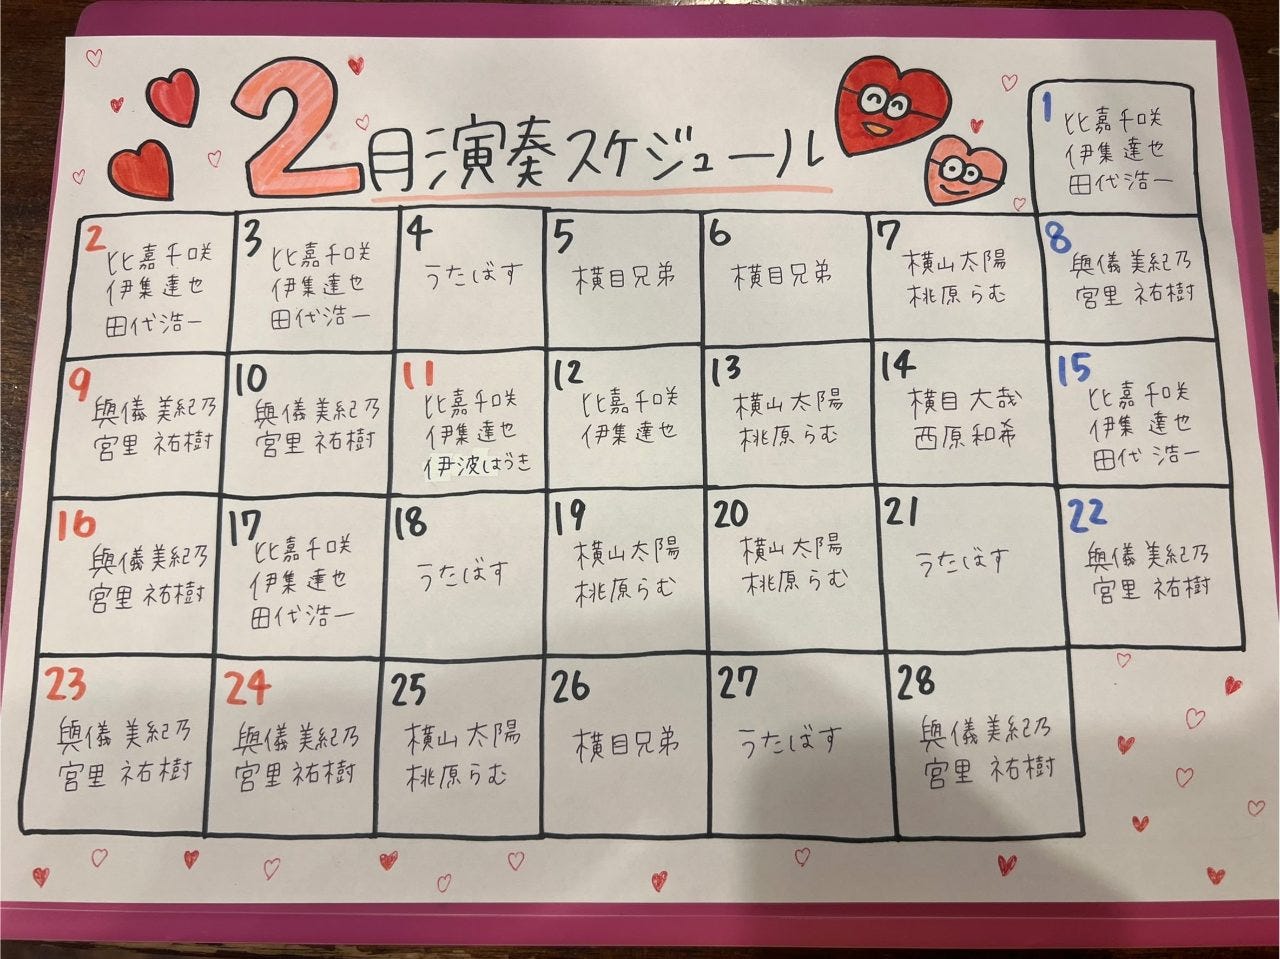 2月演奏スケジュール
1
比嘉千咲
伊集達也
田代浩一
2
比嘉千咲
伊集達也
田代浩一
3
比嘉千咲
伊集達也
田代浩一
4
うたばす
5
横目兄弟
6
横目兄弟
7
横山太陽
桃原らむ
8
與儀美紀乃
宮里祐樹
9
與儀美紀乃
宮里祐樹
10
與儀美紀乃
宮里祐樹
11
比嘉千咲
伊集達也
伊波はづき
12
比嘉千咲
伊集達也
13
横山太陽
桃原らむ
14
横目大哉
西原和希
15
比嘉千咲
伊集達也
田代浩一
16
與儀美紀乃
宮里祐樹
17
比嘉千咲
伊集達也
田代浩一
18
うたばす
19
横山太陽
桃原らむ
20
横山太陽
桃原らむ
21
うたばす
22
與儀美紀乃
宮里祐樹
23
與儀美紀乃
宮里祐樹
24
與儀美紀乃
宮里祐樹
25
横山太陽
桃原らむ
26
横目兄弟
27
うたばす
28
與儀美紀乃
宮里祐樹